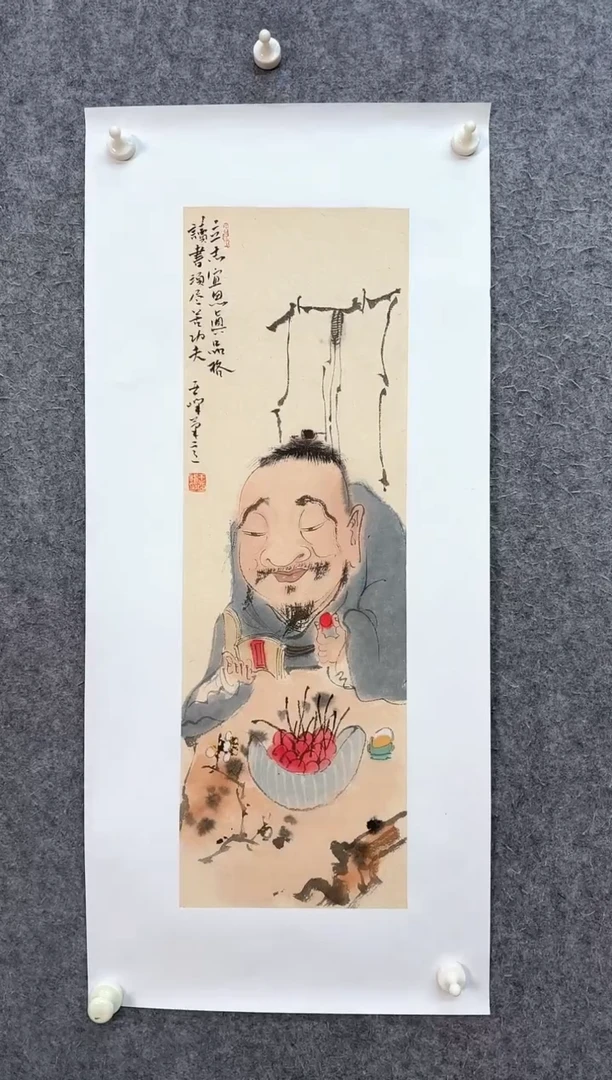 立志宜思真品格
讀書須尽苦功夫